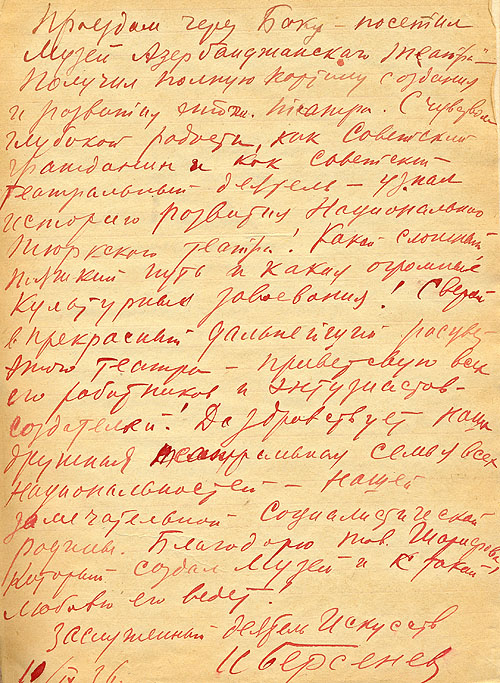 Проездом через Баку – посетил
Музей Азербайджанскаго театра –
Получил полную картину создания
и развития этого театра. С чувством
глубокой радости, как Советский
гражданин и как советский
театральный деятель – узнал
историю развития Национального
Тюркского театра! Какой сложный
тяжкий путь и какия огромные
культурныя завоевания! С верой
в прекрасный дальнейший расцвет
этого театра – приветствую всех
его работников и энтузиастов-
создателей! Да здравствует наша
дружная театральная семья всех
национальностей – нашей
замечательной социалистической
родины. Благодарю тов. Шарифова,
который создал Музей и с такой
любовью его ведет!
Заслуженный деятель Искусств
И Берсенев
10/IV 36.